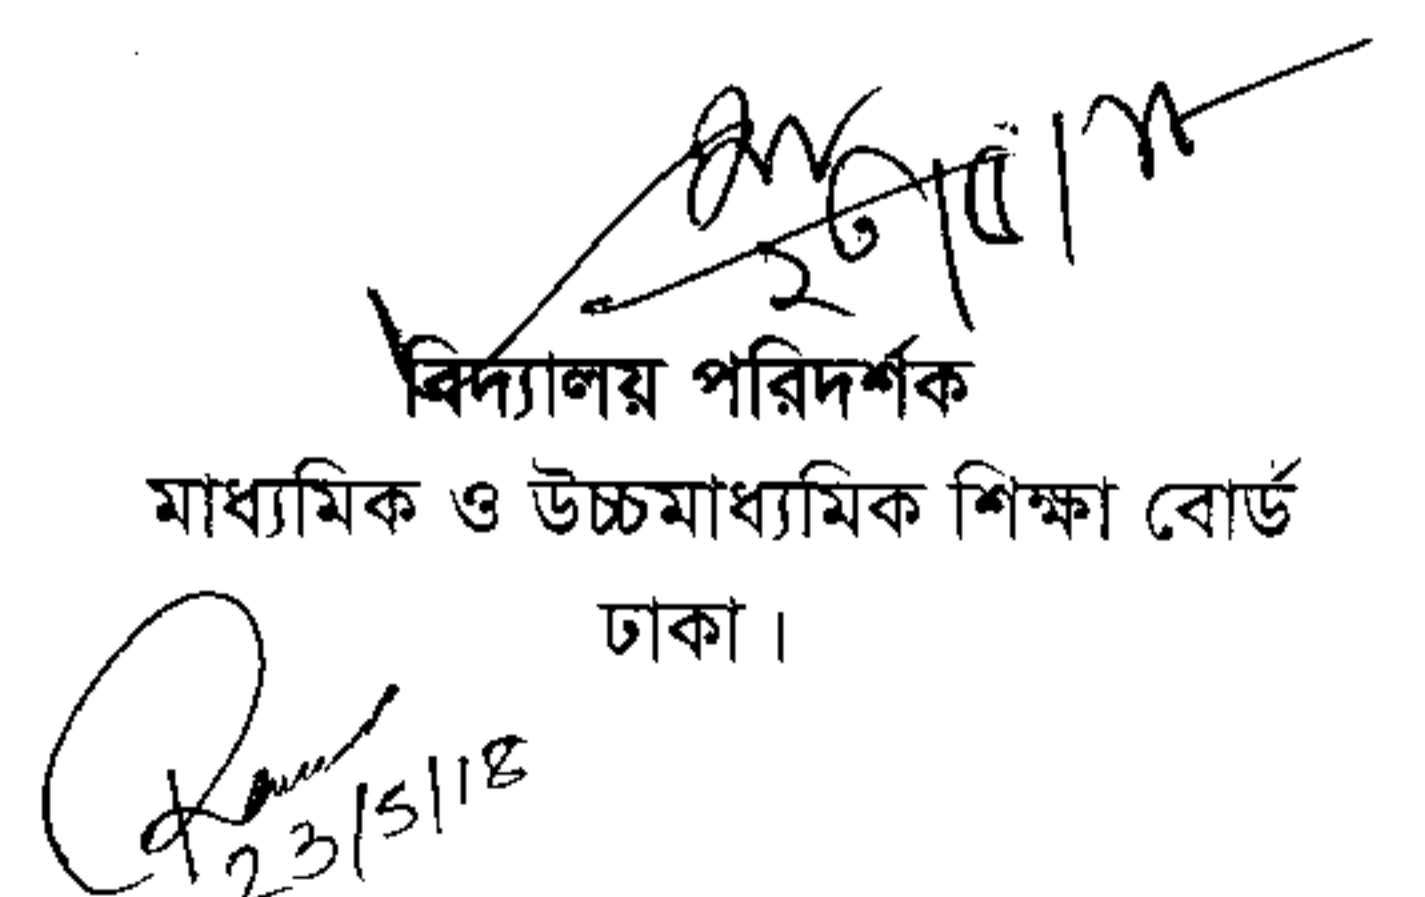 বিদ্যালয় পরিদর্শক
মাধ্যমিক ও উচ্চমাধ্যমিক শিক্ষা বোর্ড
ঢাকা।
23/5/18